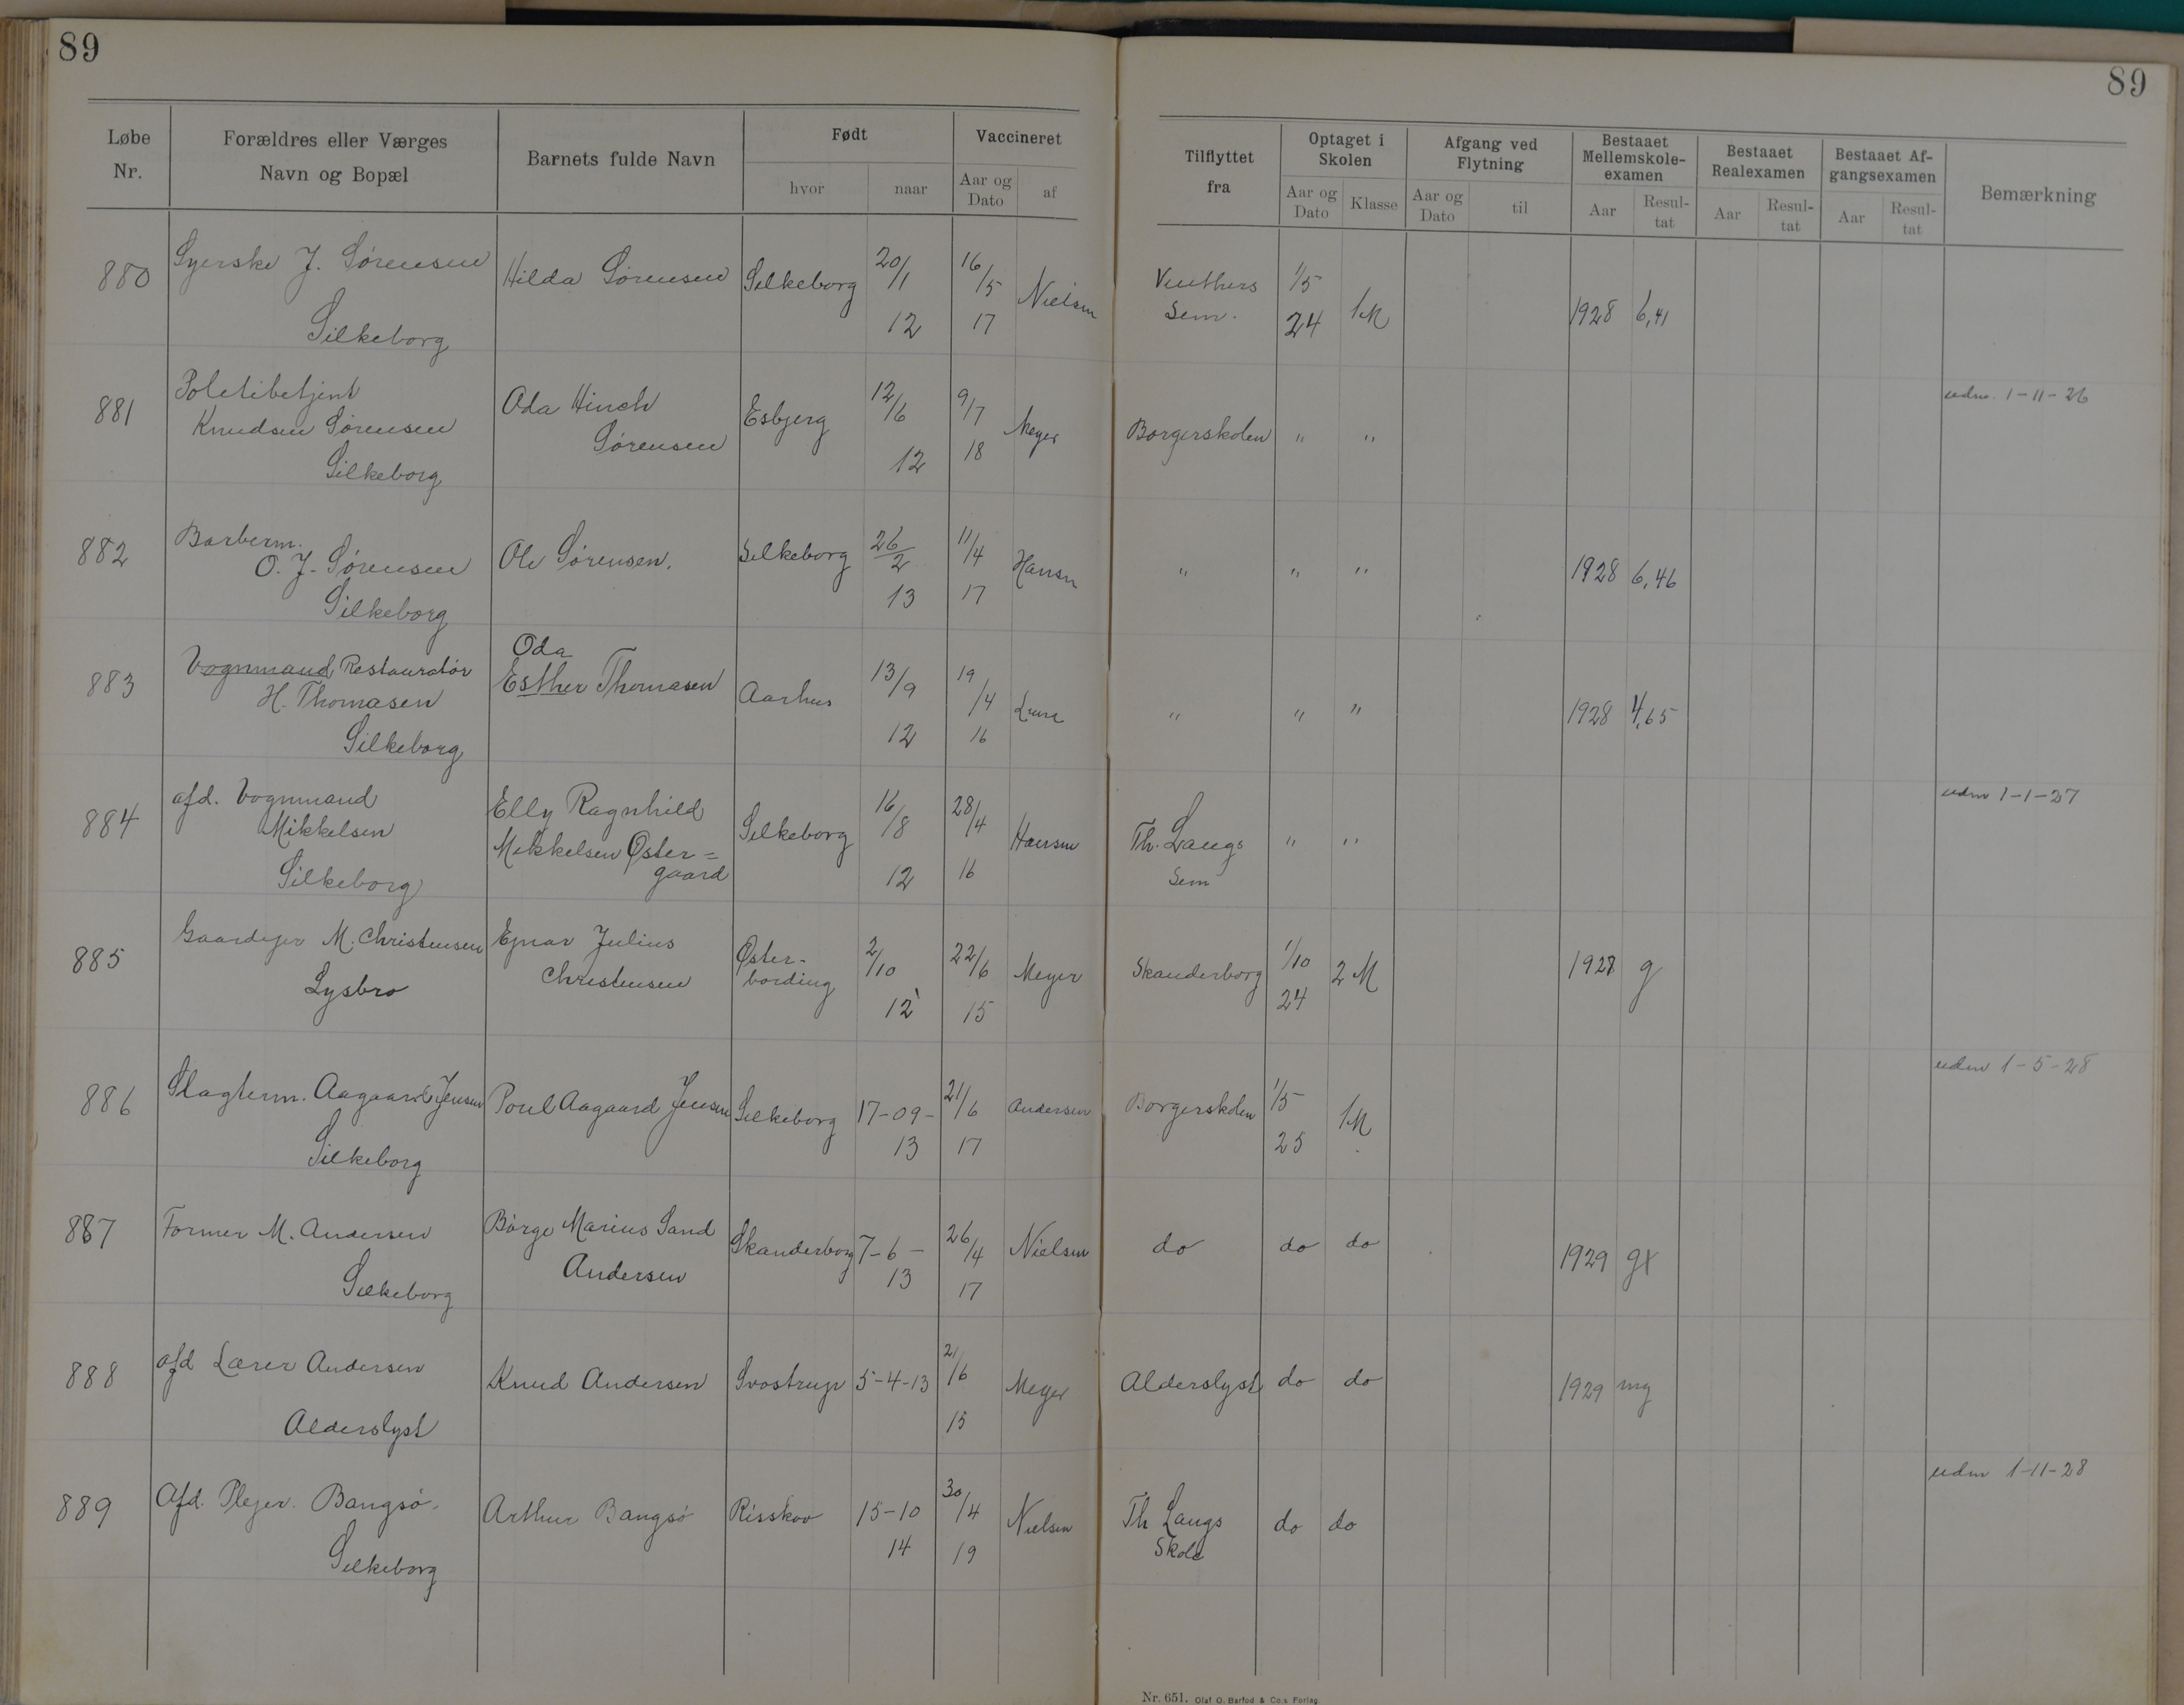 89
89
Løbe Nr.
Forældres eller Værges Navn og Bopæl
Barnets fulde Navn
Født
hvor
naar
Vaccineret
Aar og Dato
af
Tilflyttet fra
Optaget i Skolen
Aar og Dato
Klasse
Afgang ved Flytning
Aar og Dato
til
Bestaaet Mellemskole-examen
Aar
Resul-tat
Bestaaet Realexamen
Aar
Resul-tat
Bestaaet Af-gangsexamen
Aar
Resul-tat
Bemærkning
880 Syerske J. Sørensen Hilda Sørensen Silkeborg 20/1 16/5 Nielsen Sem. 1/5 1M 1928 6,41
Silkeborg 12 17 24
881 Politibetjent Oda Hinch Esbjerg 12/6 9/7 Meyer Borgerskolen " " udm. 1-11-26
Knudsen Sørensen Sørensen 12 18
Silkeborg
882 Barberm. Ole Sørensen. Silkeborg 26/2 11/4 Hansen " " " 1928 6,46
O. J. Sørensen 13 17
Silkeborg
883 Vognmand Restauratør Oda
H. Thomasen Esther Thomasen Aarhus 13/9 19/4 " " " 1928 4,65
Silkeborg 12 16
884 afd. Vognmand Elly Ragnhild Silkeborg 16/8 28/4 Hansen Th. Langs " " udm 1-1-27
Mikkelsen Mikkelsen Øster= 12 16 Sem
Silkeborg gaard
885 Gaardejer M. Christensen Ejnar Julius Øster- 2/10 22/6 Meyer Skanderborg 1/10 2M g
Lysbro Christensen bording 12 15 24
886 Slagterm. Aagaard Jensen Poul Aagaard Jensen Silkeborg 17-09- 21/6 Andersen Borgerskolen 1/5 1M udm 1-5-28
Silkeborg 13 17 25
887 Former M. Andersen Börge Marius Sand Skanderborg 7-6- 26/4 Nielsen do do do 1929 gx
Silkeborg Andersen 13 17
888 afd Lærer Andersen Knud Andersen Svostrup 5-4-13 21/6 Meyer Alderslyst do do 1929 mg
Alderslyst 15
889 Afd. Plejer. Bangsö. Arthur Bangsö Risskov 15-10 30/4 Nielsen Th Langs do do udm 1-11-28
Silkeborg 14 19 Skole
Nr. 651. Olaf O. Barfod & Co.s Forlag.